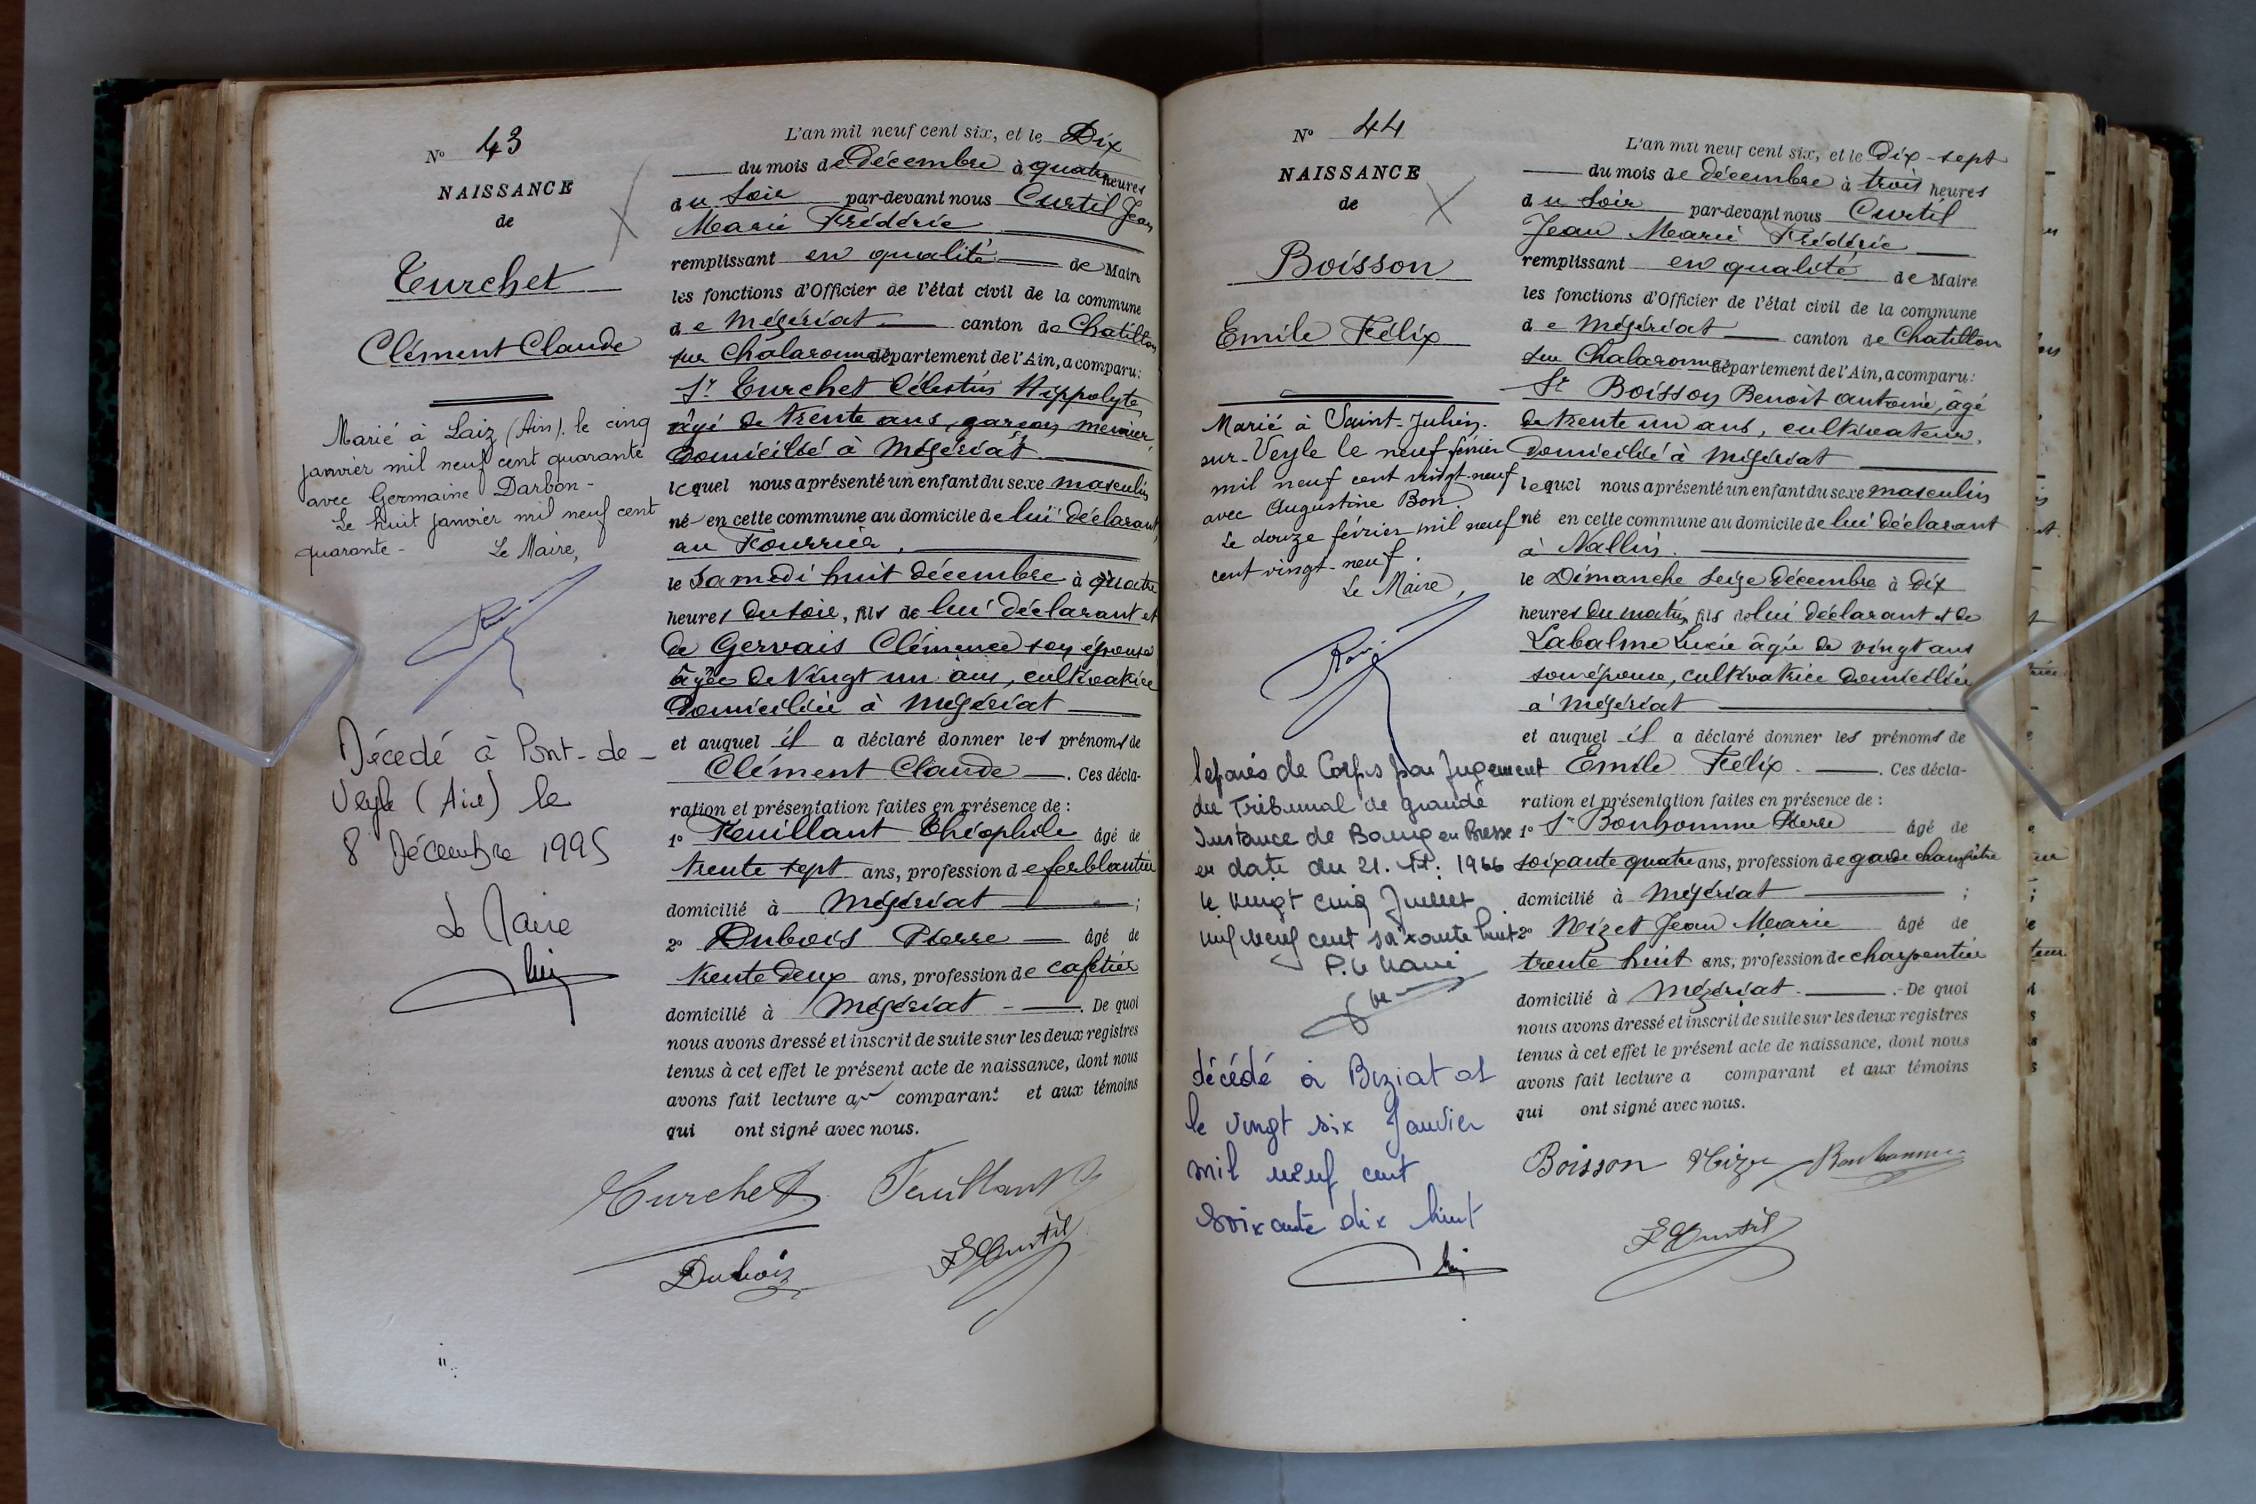 N° 43
NAISSANCE
de
Turchet
Clément Claude
Marié à Laiz (Ain). le cinq
janvier mil neuf cent quarante
avec Germaine Darbon -
Le huit janvier mil neuf cent
quarante - Le Maire,
Décédé à Pont-de-
Veyle (Ain) le
8 Décembre 1995
Le Maire
L'an mil neuf cent six, et le Dix
du mois de Décembre à quatre heures
du Soir par-devant nous Curtil Jean
Marie Frédéric
remplissant en qualité de Maire
les fonctions d'Officier de l'état civil de la commune
de Mézériat canton de Chatillon
sur Chalaronne département de l'Ain, a comparu:
Sr Turchet Célestin Hippolyte,
âgé de trente ans, garçon meunier,
domicilié à Mézériat
lequel nous a présenté un enfant du sexe masculin
né en cette commune au domicile de lui déclarant,
au Fourrier,
le Samedi huit décembre à quatre
heures du soir, fils de lui déclarant et
de Gervais Clémence son épouse
âgée de Vingt un ans, cultivatrice
domiciliée à Mézériat
et auquel il a déclaré donner les prénoms de
Clément Claude. Ces décla-
ration et présentation faites en présence de :
1° Feuillant Théophile âgé de
trente sept ans, profession de ferblantier
domicilié à Mézériat ;
2° Dubois Pierre âgé de
trente deux ans, profession de cafetier
domicilié à Mézériat. De quoi
nous avons dressé et inscrit de suite sur les deux registres
tenus à cet effet le présent acte de naissance, dont nous
avons fait lecture au comparant et aux témoins
qui ont signé avec nous.
Turchet Feuillant
Dubois F Curtil
N° 44
NAISSANCE
de
Boisson
Emile Félix
Marié à Saint-Julien-
sur-Veyle le neuf février
mil neuf cent vingt-neuf
avec Augustine Bon.
Le douze février mil neuf
cent vingt-neuf.
Le Maire,
Séparés de Corps par Jugement
du Tribunal de grande
Instance de Bourg en Bresse
en date du 21. 1966
le vingt cinq Juillet
mil neuf cent soixante huit
P. le Maire
décédé à Biziat
le vingt six Janvier
mil neuf cent
soixante dix huit
L'an mil neuf cent six, et le Dix-sept
du mois de Décembre à trois heures
du Soir par-devant nous Curtil
Jean Marie Frédéric
remplissant en qualité de Maire
les fonctions d'Officier de l'état civil de la commune
de Mézériat canton de Chatillon
sur Chalaronne département de l'Ain, a comparu:
Sr Boisson Benoit antoine, âgé
de trente un ans, cultivateur,
domicilié à Mézériat
lequel nous a présenté un enfant du sexe masculin
né en cette commune au domicile de lui déclarant
à Nallin.
le Dimanche seize décembre à dix
heures du matin, fils de lui déclarant et de
Labalme Lucie âgée de vingt ans
son épouse, cultivatrice domiciliée
à Mézériat
et auquel il a déclaré donner les prénoms de
Emile Félix. Ces décla-
ration et présentation faites en présence de :
1° Sr Bonhomme Pierre âgé de
soixante quatre ans, profession de garde champêtre
domicilié à Mézériat ;
2° Nizet Jean Marie âgé de
trente huit ans, profession de charpentier
domicilié à Mézériat. De quoi
nous avons dressé et inscrit de suite sur les deux registres
tenus à cet effet le présent acte de naissance, dont nous
avons fait lecture a comparant et aux témoins
qui ont signé avec nous.
Boisson Nizet Bonhomme
F Curtil